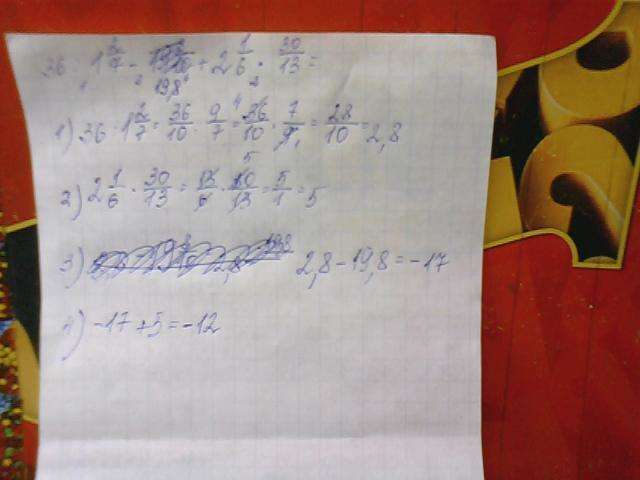 36 : 1 2/7 - 19,8 + 2 1/6 · 30/13 =
1) 36 · 1 2/7 = 36/10 · 9/7 = 36/10 · 7/9 = 28/10 = 2,8
2) 2 1/6 · 30/13 = 13/6 · 30/13 = 5/1 = 5
3) 2,8 - 19,8 = -17
4) -17 + 5 = -12